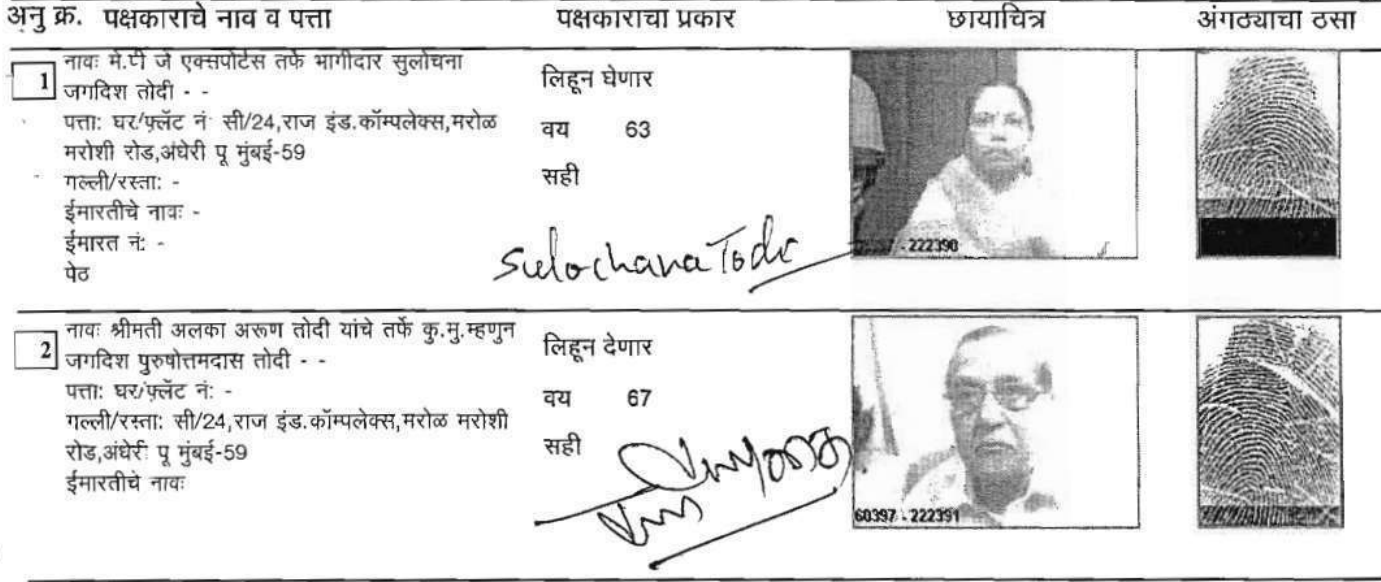 अनु क्र. पक्षकाराचे नाव व पत्ता पक्षकाराचा प्रकार छायाचित्र अंगठ्याचा ठसा
1 नावः मे.पी जे एक्सपोर्टस तर्फे भागीदार सुलोचना
जगदिश तोदी - -
पत्ता: घर/फ़्लॅट नं सी/24,राज इंड.कॉम्पलेक्स,मरोळ
मरोशी रोड,अंधेरी पू मुंबई-59
गल्ली/रस्ता: -
ईमारतीचे नावः -
ईमारत नं: -
पेठ
लिहून घेणार
वय 63
सही
Sulochana Todi
- 222390
2 नावः श्रीमती अलका अरूण तोदी यांचे तर्फे कु.मु.म्हणुन
जगदिश पुरुषोत्तमदास तोदी - -
पत्ता: घर/फ़्लॅट नं: -
गल्ली/रस्ता: सी/24,राज इंड.कॉम्पलेक्स,मरोळ मरोशी
रोड,अंधेरी पू मुंबई-59
ईमारतीचे नावः
लिहून देणार
वय 67
सही
60397 - 222391